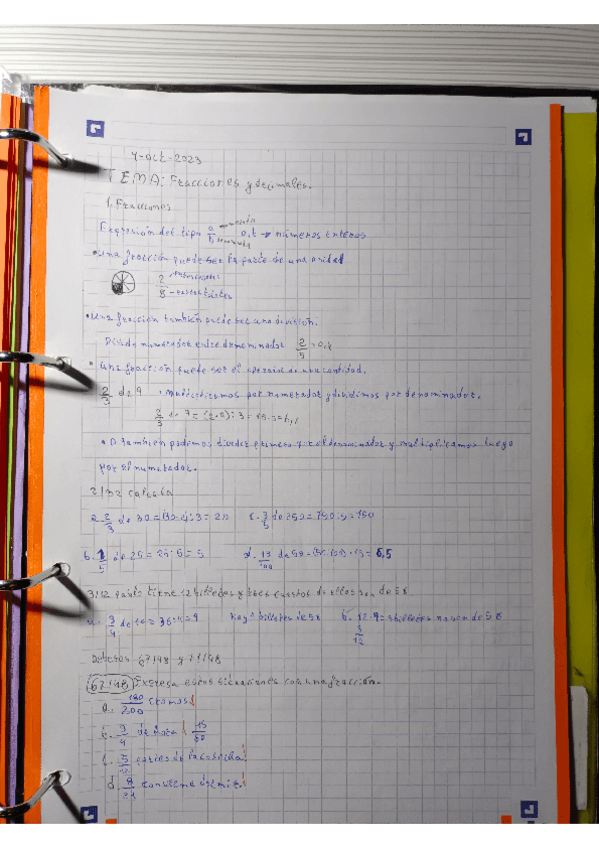 4-oct-2023
TEMA: Fracciones y decimales.
1. Fracciones
Expresión del tipo a/b a,b → números enteros
• Una fracción puede ser la parte de una unidad
2/8
• Una fracción también puede ser una división.
Divido numerador entre denominador 2/5 =0,4
• Una fracción puede ser el operador de una cantidad.
2/3 de 9 • multiplicamos por numerador y dividimos por denominador.
2/3 de
• O también podemos dividir primero por el denominador y multiplicamos luego
por el numerador.
2/132 calcula
a. 2/3 de 30 = (30·2):3 = 20 c. 3/5 de 250 = 750:5 = 150
b. 1/5 de 25 = 25:5 = 5 d. 13/100 de 50 = (50:100)·13 = 6,5
tiene 12 billetes y tres cuartos de ellos son de 5€
a. 3/4 de 12 = 36:4 = 9 Hay 9 billetes de 5€ b. 12-9= 3 billetes no son de 5€
3/12
Deberes 67/148 y 71/148
67/148 Expresa estas situaciones con una fracción.
a. 180/200
b. 3/4 de hora 15/60
c. 5/12
d. 8/24